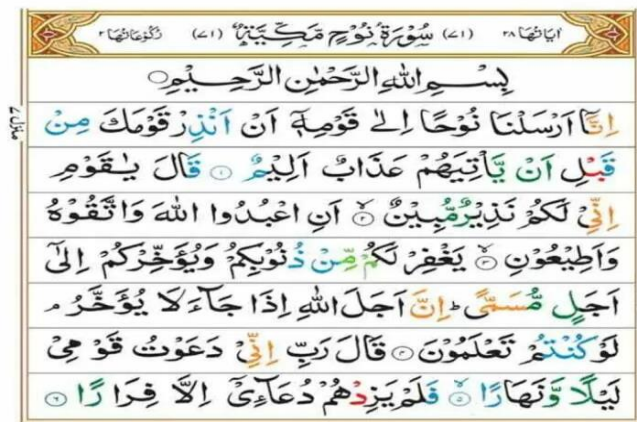 اٰيَاتُهَا ٢٨ (٧١) سُوْرَةُ نُوْحٍ مَكِّيَّةٌ (٧١) رُكُوْعَاتُهَا ٢
بِسْمِ اللهِ الرَّحْمٰنِ الرَّحِيْمِ
اِنَّاۤ اَرْسَلْنَا نُوْحًا اِلٰى قَوْمِهٖۤ اَنْ اَنْذِرْ قَوْمَكَ مِنْ
قَبْلِ اَنْ يَّاْتِيَهُمْ عَذَابٌ اَلِيْمٌ ۝١ قَالَ يٰقَوْمِ
اِنِّيْ لَكُمْ نَذِيْرٌ مُّبِيْنٌ ۝٢ اَنِ اعْبُدُوا اللهَ وَاتَّقُوْهُ
وَاَطِيْعُوْنِ ۝٣ يَغْفِرْ لَكُمْ مِّنْ ذُنُوْبِكُمْ وَيُؤَخِّرْكُمْ اِلٰۤى
اَجَلٍ مُّسَمًّى ؕ اِنَّ اَجَلَ اللهِ اِذَا جَآءَ لَا يُؤَخَّرُ ۘ
لَوْ كُنْتُمْ تَعْلَمُوْنَ ۝٤ قَالَ رَبِّ اِنِّيْ دَعَوْتُ قَوْمِيْ
لَيْلًا وَّنَهَارًا ۝٥ فَلَمْ يَزِدْهُمْ دُعَآءِيْۤ اِلَّا فِرَارًا ۝٦
منزل ٧